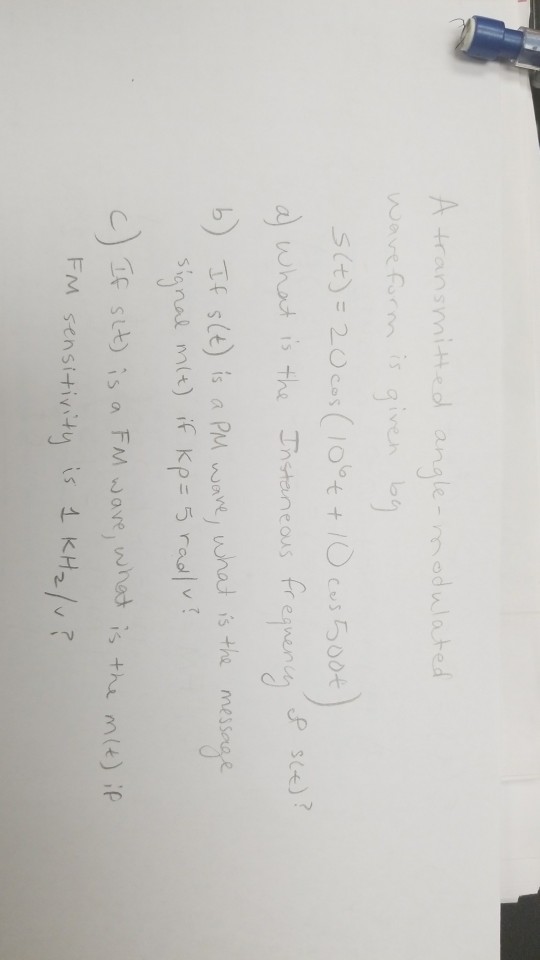 A transmitted angle-modulated
waveform is given by
S(t) = 20 cos(10⁶t + 10 cos500t)
a) What is the Instaneous frequency of s(t)?
b) If s(t) is a PM wave, what is the message
signal m(t) if Kp = 5 rad/v?
c) If s(t) is a FM wave, what is the m(t) if
FM sensitivity is 1 KHz/v?